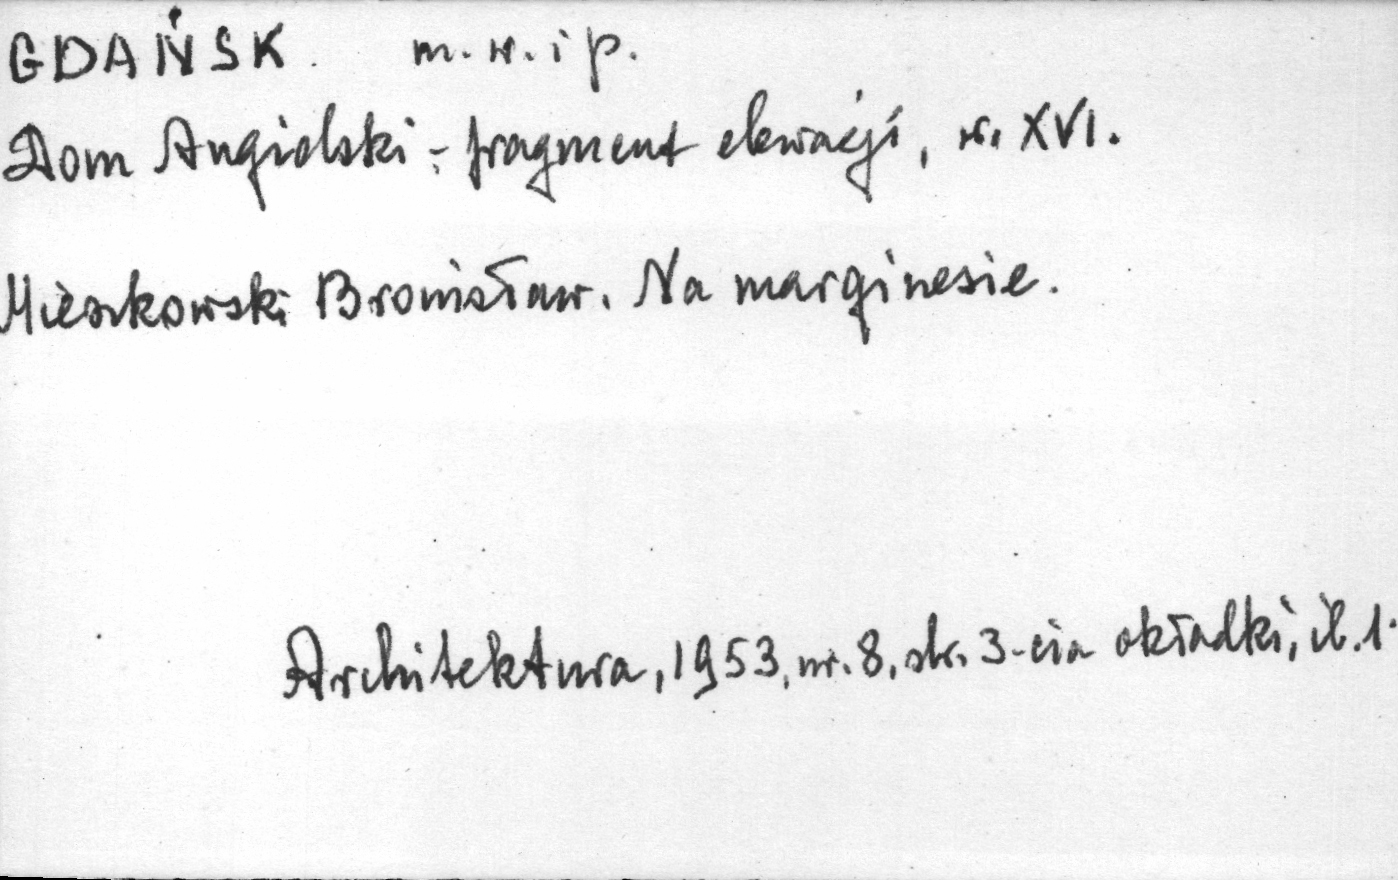 GDAŃSK. m. w. i p.
Dom Angielski - fragment elewacji, w. XVI.
Mieszkowski Bronisław. Na marginesie.
Architektura, 1953, nr. 8, str. 3-cia okładki, il. 1.